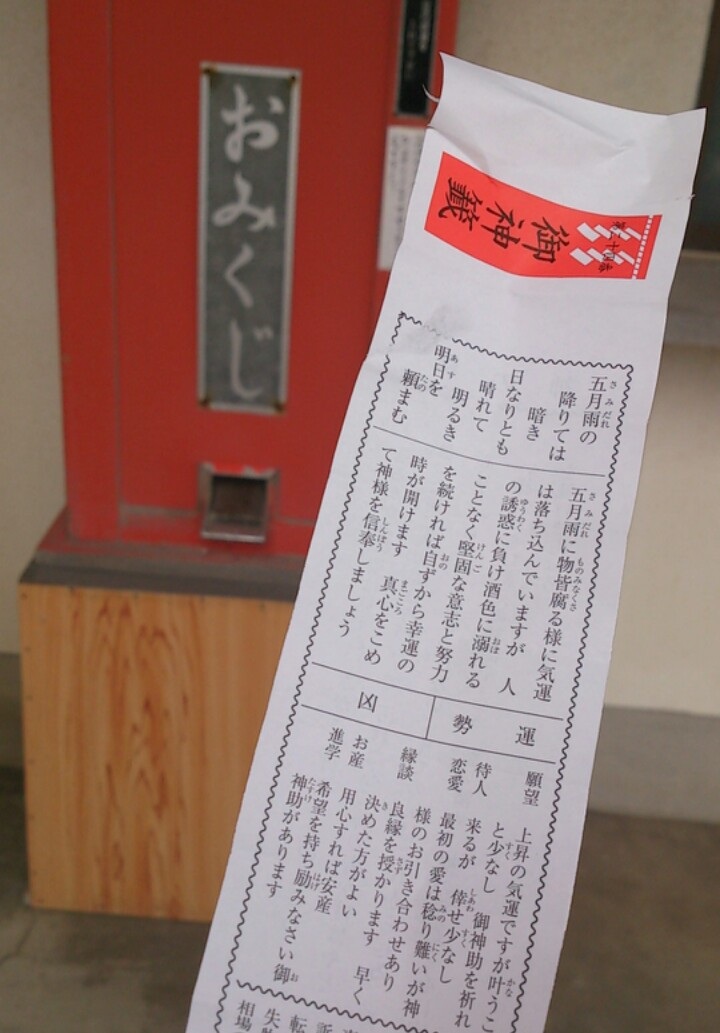 おみくじ
御神籤
五月雨の
降りては
暗き
日なりとも
晴れて
明るき
明日を
頼まむ
五月雨に物皆腐る様に気運
は落ち込んでいますが 人
の誘惑に負け酒色に溺れる
ことなく堅固な意志と努力
を続ければ自ずから幸運の
時が開けます 真心をこめ
て神様を信奉しましょう
運勢
凶
願望 上昇の気運ですが叶うこ
と少なし 御神助を祈れ
待人 来るが 倖せ少なし
恋愛 最初の愛は稔り難いが神
様のお引き合わせあり
縁談 良縁を授かります 早く
決めた方がよい
お産 用心すれば安産
進学 希望を持ち励みなさい御
神助があります